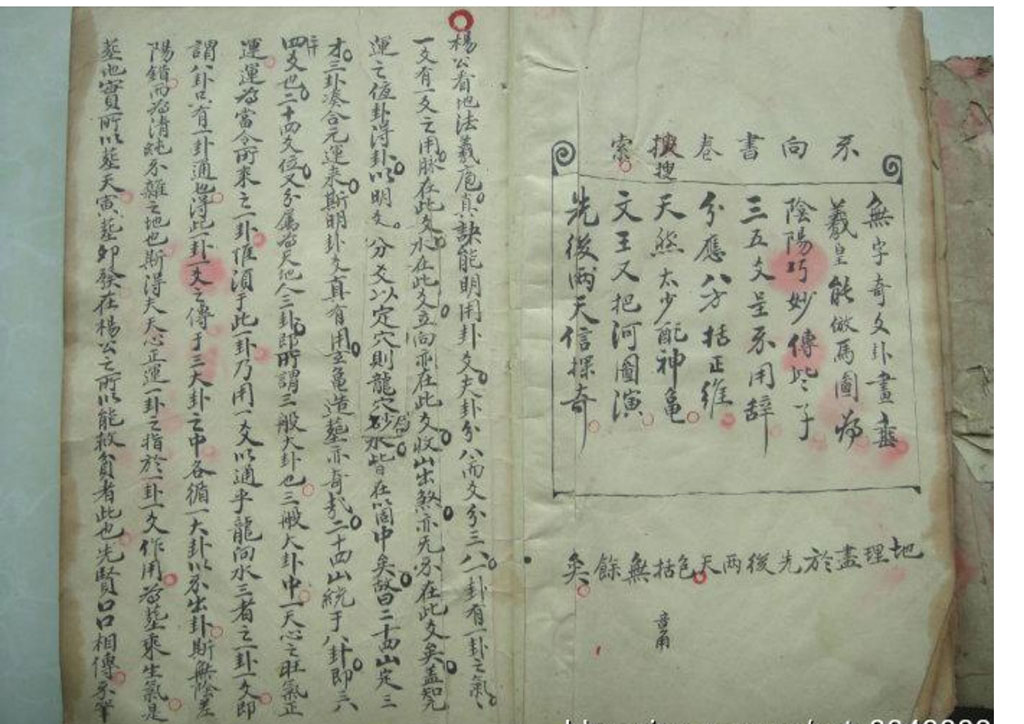 不向書卷搜索
搜
無字奇文卦畫盡
羲皇能倣馬圖為
陰陽巧妙傳些々子
三五爻呈不用辞
分應八方括正維
天然太少配神龜
文王又把河圖演
先後兩天信探奇
地理盡於先後两天包括無餘矣
楊公看地法羲庖真訣能明用卦爻夫卦分八而爻分三八一卦有一卦之氣
一爻有一爻之用脉在此爻水在此爻立向亦在此爻收山出煞亦无不在此爻矣盖知元
運之值卦淂卦以明爻分爻以定穴則龍穴砂水皆在以箇中矣故曰二十四山定三
才三卦凑合元運来斯明卦爻真有用玄龜造墓亦奇哉二十四山統于八卦即三八
廿四爻也二十四爻位又分属为天地人三卦即所謂三般大卦也三般大卦中一天心之旺氣正
運運为當令所来之一卦惟須于此一卦乃用一爻以通乎龍向水三者之一卦一爻即
謂八卦只有一卦通也淂此卦一爻之傳于三大卦之中各循一大卦以不出卦斯無陰差
陽錯而为清純不雜之地也斯得夫天心正運一卦之指於一卦一爻作用为墓乘生氣是
墓也實所以墓天寅墓卯發在楊公之所以能救貧者此也先賢口口相傳不筆